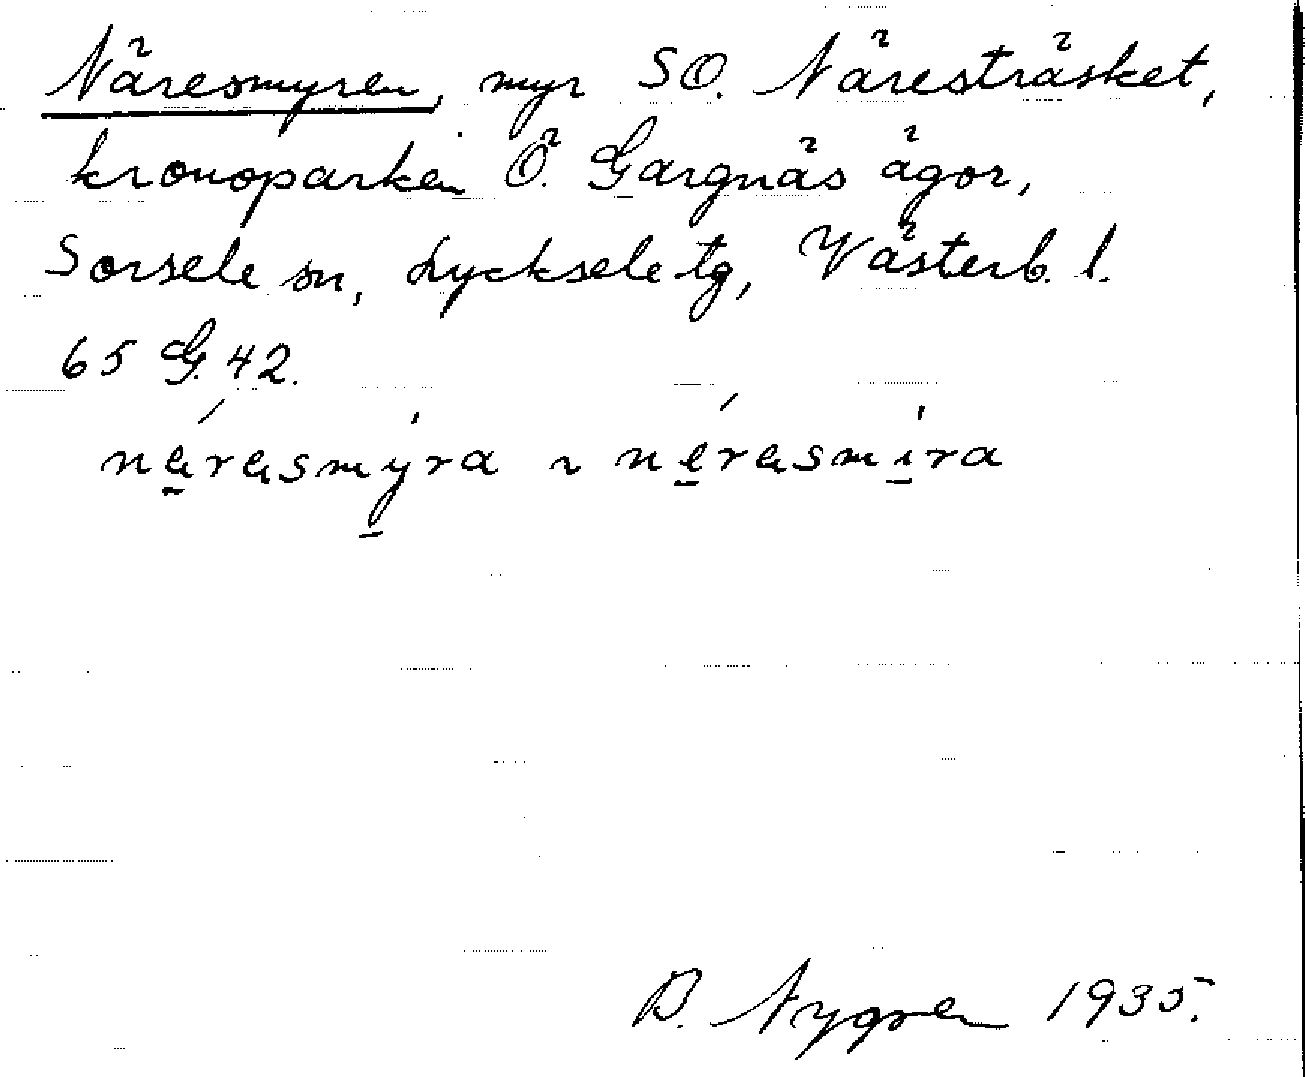 Näresmyren, myr SO. Näresträsket,
kronoparken Ö. Gargnäs ägor,
Sorsele sn, Lycksele tg, Västerb. l.
65 G. 42.
nä́rəsmy̍ra ~ né̱rəsmi̱̍ra
B. Nygren 1935.